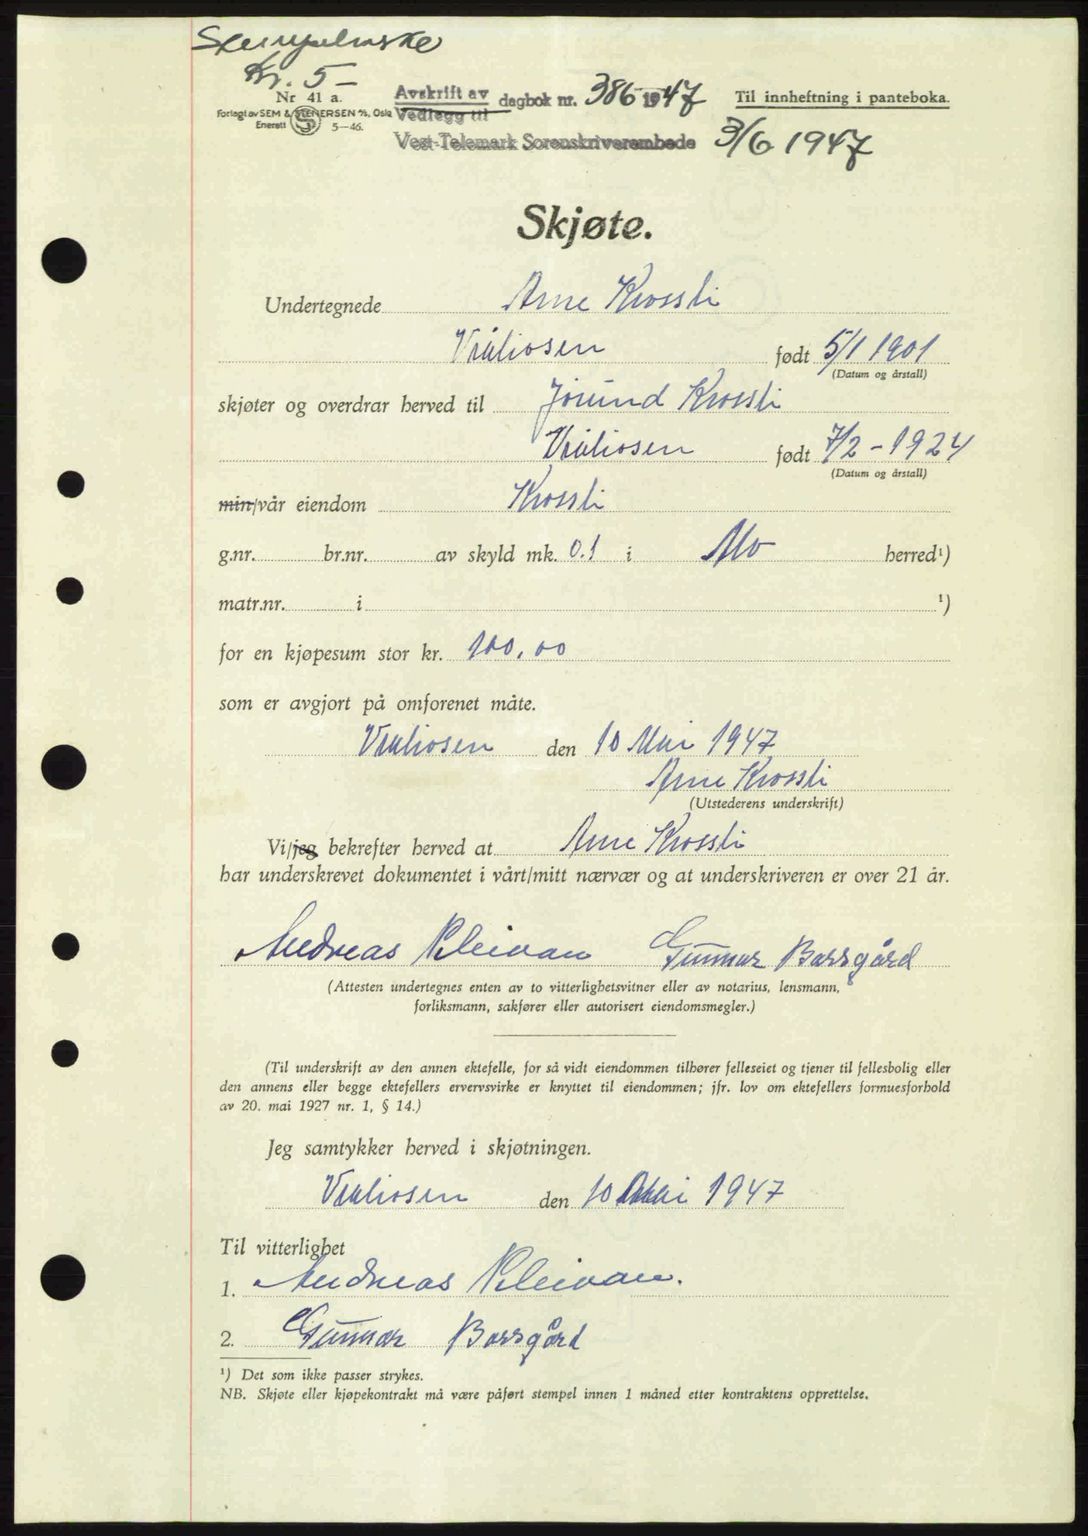 Stempelmerke
Kr. 5 –
Nr 41 a.
Forlagt av SEM & STENERSEN A/S, Oslo
Enerett 5—46.
Avskrift av
Vedlegg til
dagbok nr. 386 1947
Til innheftning i panteboka.
Vest-Telemark Sorenskriverembede 3/6 1947
Skjøte.
Undertegnede Arne Krossli
Vråliosen født 5/1 1901
(Datum og årstall)
skjøter og overdrar herved til Jorund Krossli
Vråliosen født 7/2 - 1924
(Datum og årstall)
min/vår eiendom Krossli
g.nr. br.nr. av skyld mk. 0.1 i Mo herred¹)
matr.nr. i ¹)
for en kjøpesum stor kr. 100,00
som er avgjort på omforenet måte.
Vraliosen den 10 Mai 1947
Arne Krossli
(Utstederens underskrift)
Vi/jeg bekrefter herved at Arne Krossli
har underskrevet dokumentet i vårt/mitt nærvær og at underskriveren er over 21 år.
Andreas Kleivan Gunnar Borsgård
(Attesten undertegnes enten av to vitterlighetsvitner eller av notarius, lensmann,
forliksmann, sakfører eller autorisert eiendomsmegler.)
(Til underskrift av den annen ektefelle, for så vidt eiendommen tilhører felleseiet og tjener til fellesbolig eller
den annens eller begge ektefellers ervervsvirke er knyttet til eiendommen; jfr. lov om ektefellers formuesforhold
av 20. mai 1927 nr. 1, § 14.)
Jeg samtykker herved i skjøtningen.
Vraliosen den 10 Mai 1947
Til vitterlighet
1. Andreas Kleivan.
2. Gunnar Borsgård
¹) Det som ikke passer strykes.
NB. Skjøte eller kjøpekontrakt må være påført stempel innen 1 måned etter kontraktens opprettelse.